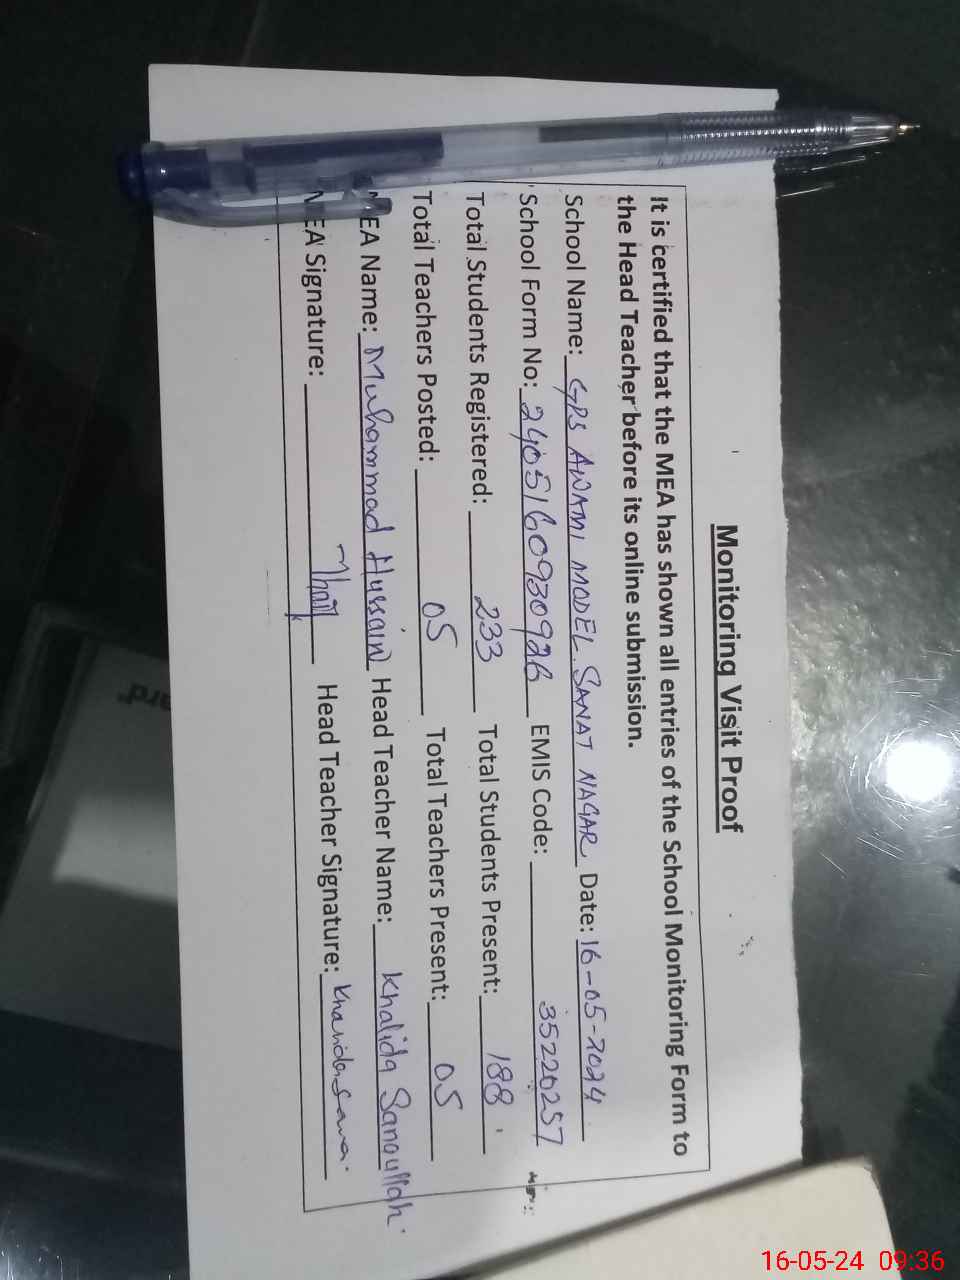 Monitoring Visit Proof
It is certified that the MEA has shown all entries of the School Monitoring Form to
the Head Teacher before its online submission.
School Name: GPS AWAMI MODEL SANAT NAGAR Date: 16-05-2024
School Form No: 2405160930926 EMIS Code: 35220257
Total Students Registered: 233 Total Students Present: 188
Total Teachers Posted: 05 Total Teachers Present: 05
MEA Name: Muhammad Hussain Head Teacher Name: Khalida Sanaullah
MEA Signature: Head Teacher Signature:
16-05-24 09:36